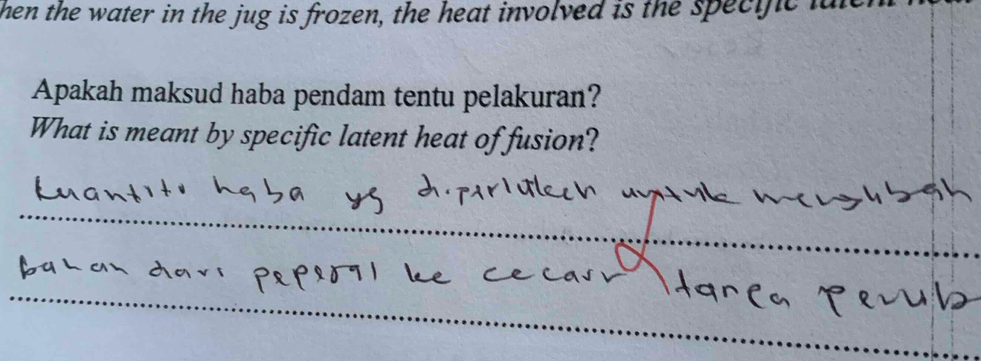 hen the water in the jug is frozen, the heat involved is the specific latent
Apakah maksud haba pendam tentu pelakuran?
What is meant by specific latent heat of fusion?
kuantiti haba yg diperlukan untuk mengubah
bahan dari pepejal ke cecair tanpa perub